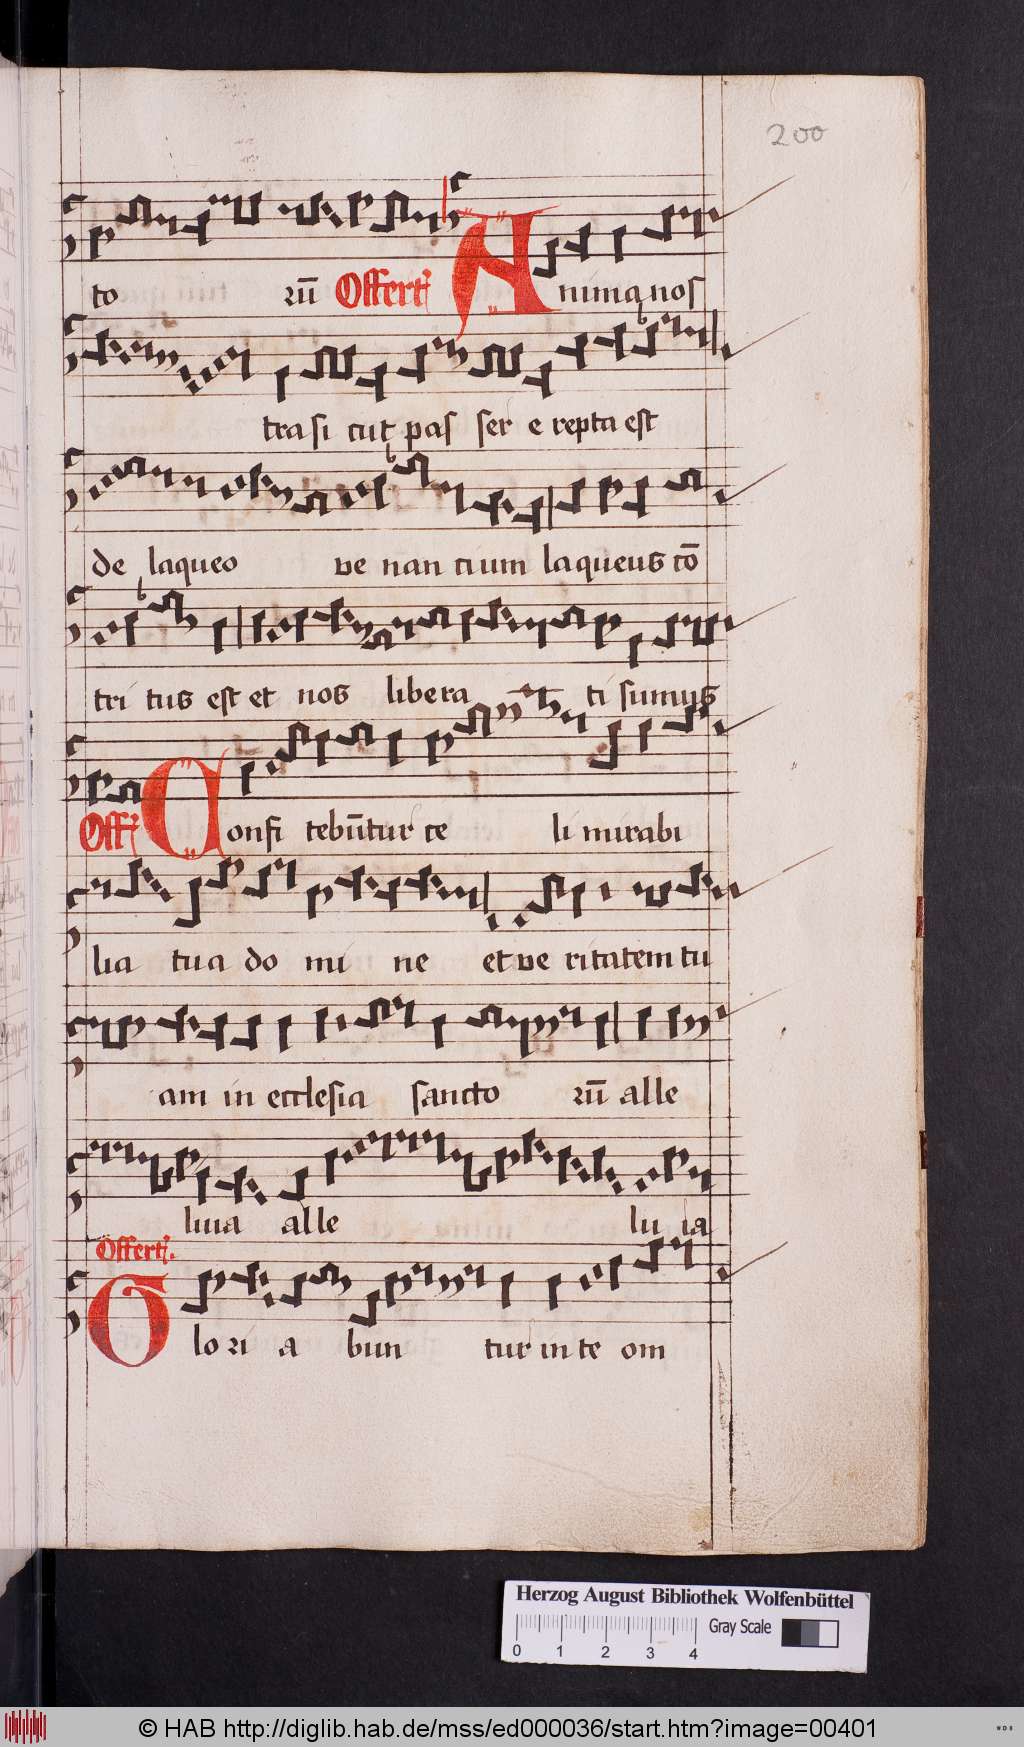 200
to rū Offert A nima nos
tra si cut pas ser e repta est
de laqueo ve nan tium laqueus cō
tri tus est et nos libera ti sumus
Off C onfi tebūtur ce li mirabi
lia tua do mi ne et ve ritatem tu
am in ecclesia sancto rū alle
luia alle lu ia
Offert.
G lo ri a bun tur in te om
Herzog August Bibliothek Wolfenbüttel
Gray Scale
0 1 2 3 4
© HAB http://diglib.hab.de/mss/ed000036/start.htm?image=00401